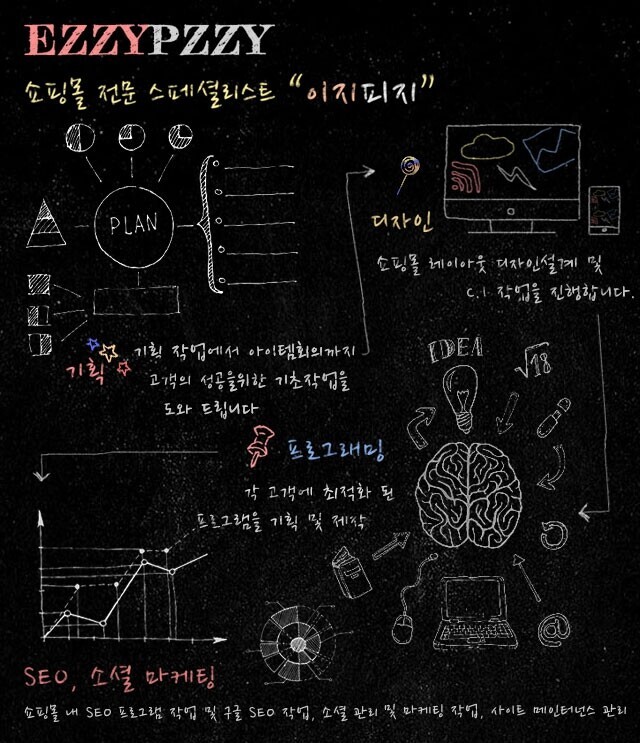 EZZYPZZY
쇼핑몰 전문 스페셜리스트 “이지피지”
PLAN
기획
기획 작업에서 아이템회의까지
고객의 성공을위한 기초작업을
도와 드립니다
디자인
쇼핑몰 레이아웃 디자인설계 및
C.I 작업을 진행합니다.
IDEA
√18
프로그래밍
각 고객에 최적화 된
프로그램을 기획 및 제작
@
SEO, 소셜 마케팅
쇼핑몰 내 SEO 프로그램 작업 및 구글 SEO 작업, 소셜 관리 및 마케팅 작업, 사이트 메인터넌스 관리